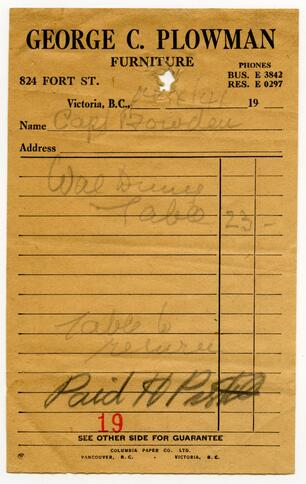 GEORGE C. PLOWMAN
FURNITURE
824 FORT ST.
PHONES
BUS. E 3842
RES. E 0297
Victoria, B.C., 19
Name Capt Bowden
Address
Wal Dining
Table 23 -
Table to
return
Paid H
19
SEE OTHER SIDE FOR GUARANTEE
COLUMBIA PAPER CO. LTD.
VANCOUVER, B.C. - VICTORIA, B.C.